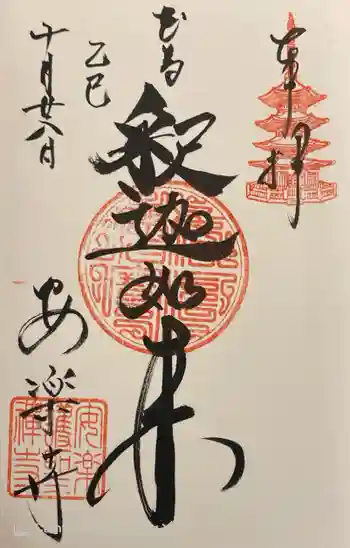 奉拝
釈迦如来
乙巳
十月廿八日
安楽寺
安楽護聖禅寺